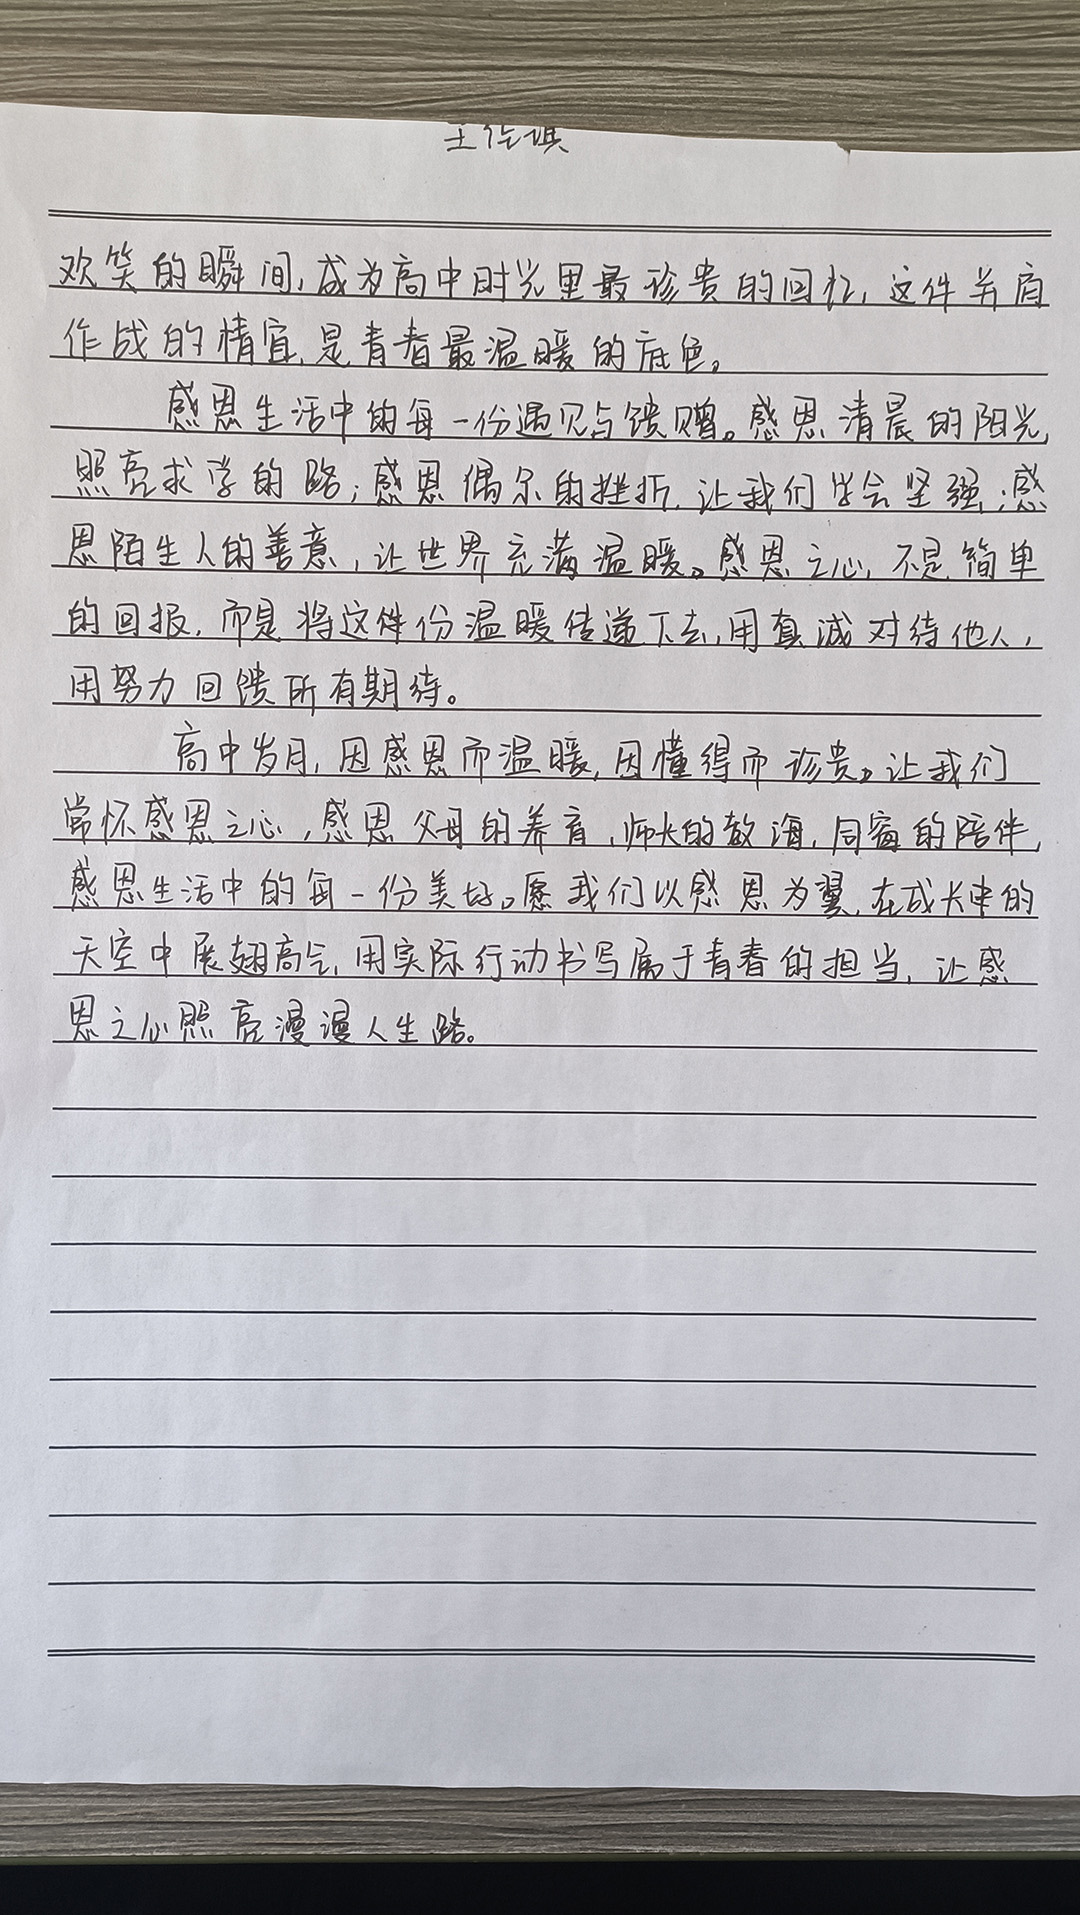 欢笑的瞬间,成为高中时光里最珍贵的回忆,这件并肩
作战的情宜,是青春最温暖的底色。
感恩生活中的每一份遇见与馈赠。感恩清晨的阳光,
照亮求学的路;感恩偶尔的挫折,让我们学会坚强;感
恩陌生人的善意,让世界充满温暖。感恩之心,不是简单
的回报,而是将这件份温暖传递下去,用真诚对待他人,
用努力回馈所有期待。
高中岁月,因感恩而温暖,因懂得而珍贵。让我们
常怀感恩之心,感恩父母的养育,师长的教诲,同窗的陪伴,
感恩生活中的每一份美好。愿我们以感恩为翼,在成长中的
天空中展翅高飞,用实际行动书写属于青春的担当,让感
恩之心照亮漫漫人生路。